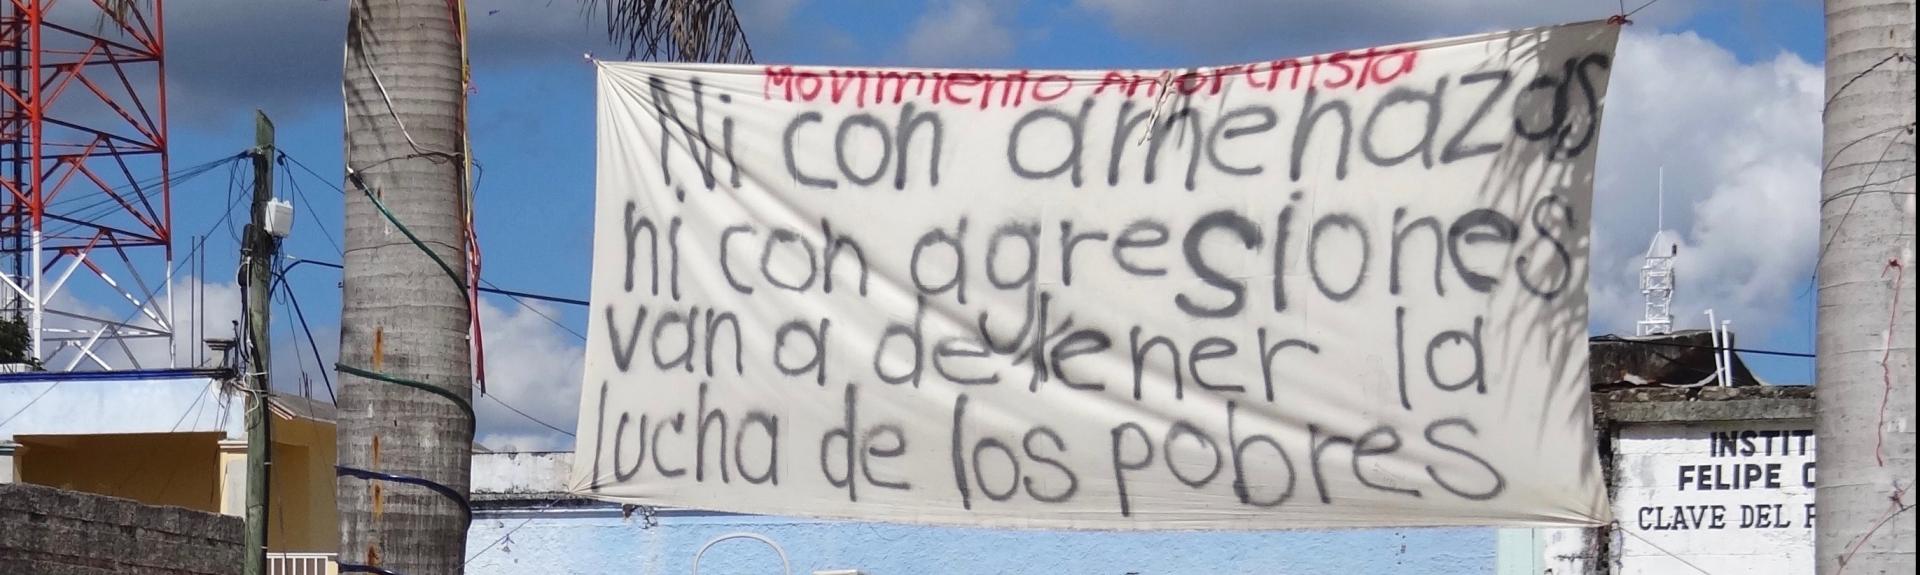 Movimiento Anarchista
Ni con amenazas
ni con agresiones
van a detener la
lucha de los pobres
INSTIT
FELIPE C
CLAVE DEL P